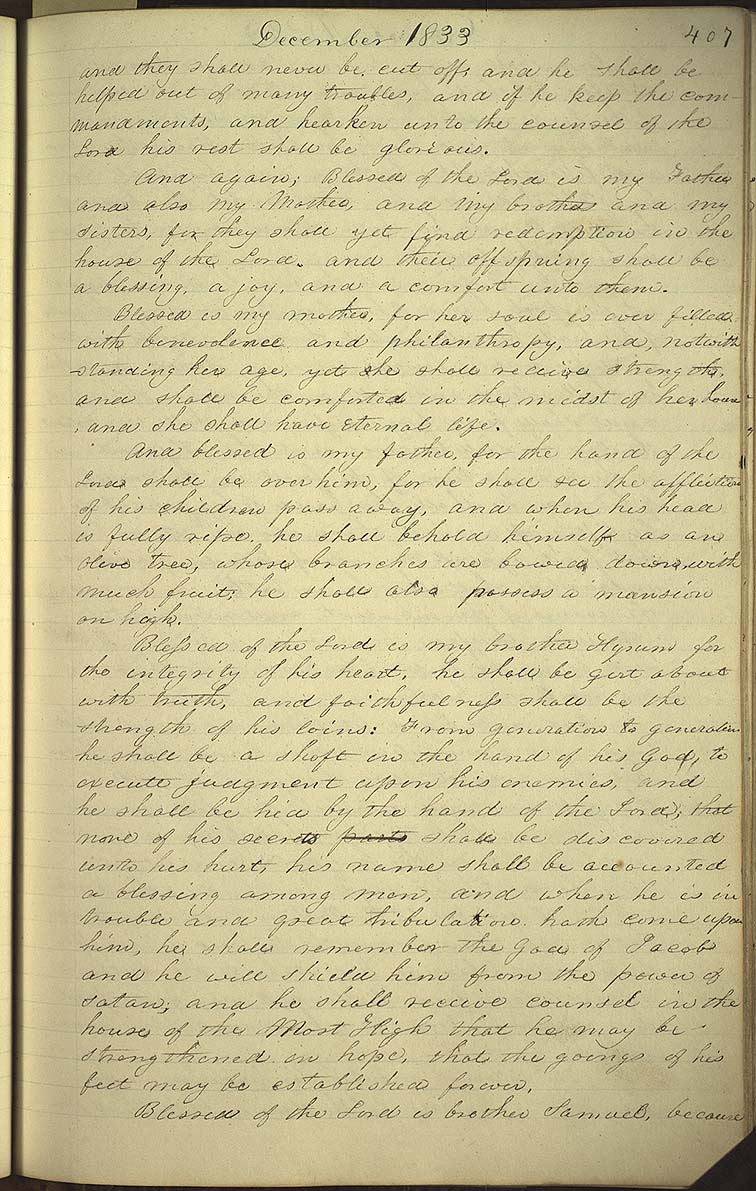 December 1833
407
and they shall never be cut off, and he shall be
helped out of many troubles, and if he keep the com-
mandments, and hearken unto the counsel of the
Lord his rest shall be glorious.
And again; Blessed of the Lord is my Father
and also my Mother, and my brother and my
sisters, for they shall yet find redemption in the
house of the Lord. and their offspring shall be
a blessing, a joy, and a comfort unto them.
Blessed is my mother, for her soul is ever filled
with benevolence and philanthropy, and, notwith
standing her age, yet she shall receive strength,
and shall be comforted in the midst of her house
, and she shall have eternal life.
And blessed is my father, for the hand of the
Lord shall be over him, for he shall see the affliction
of his children pass away, and when his head
is fully ripe, he shall behold himself as an
olive tree, whose branches are bowed down with
much fruit; he shall also possess a mansion
on high.
Blessed of the Lord is my brother Hyrum for
the integrity of his heart, he shall be girt about
with truth, and faithfulness shall be the
strength of his loins: From generation to generation
he shall be a shaft in the hand of his God, to
execute judgment upon his enemies, and
he shall be hid by the hand of the Lord, that
none of his secrets parts shall be discovered
unto his hurt, his name shall be accounted
a blessing among men, and when he is in
trouble and great tribulation hath come upon
him, he shall remember the God of Jacob
and he will shield him from the power of
satan; and he shall receive counsel in the
house of the Most High that he may be
strengthened in hope, that the goings of his
feet may be established forever.
Blessed of the Lord is brother Samuel, because